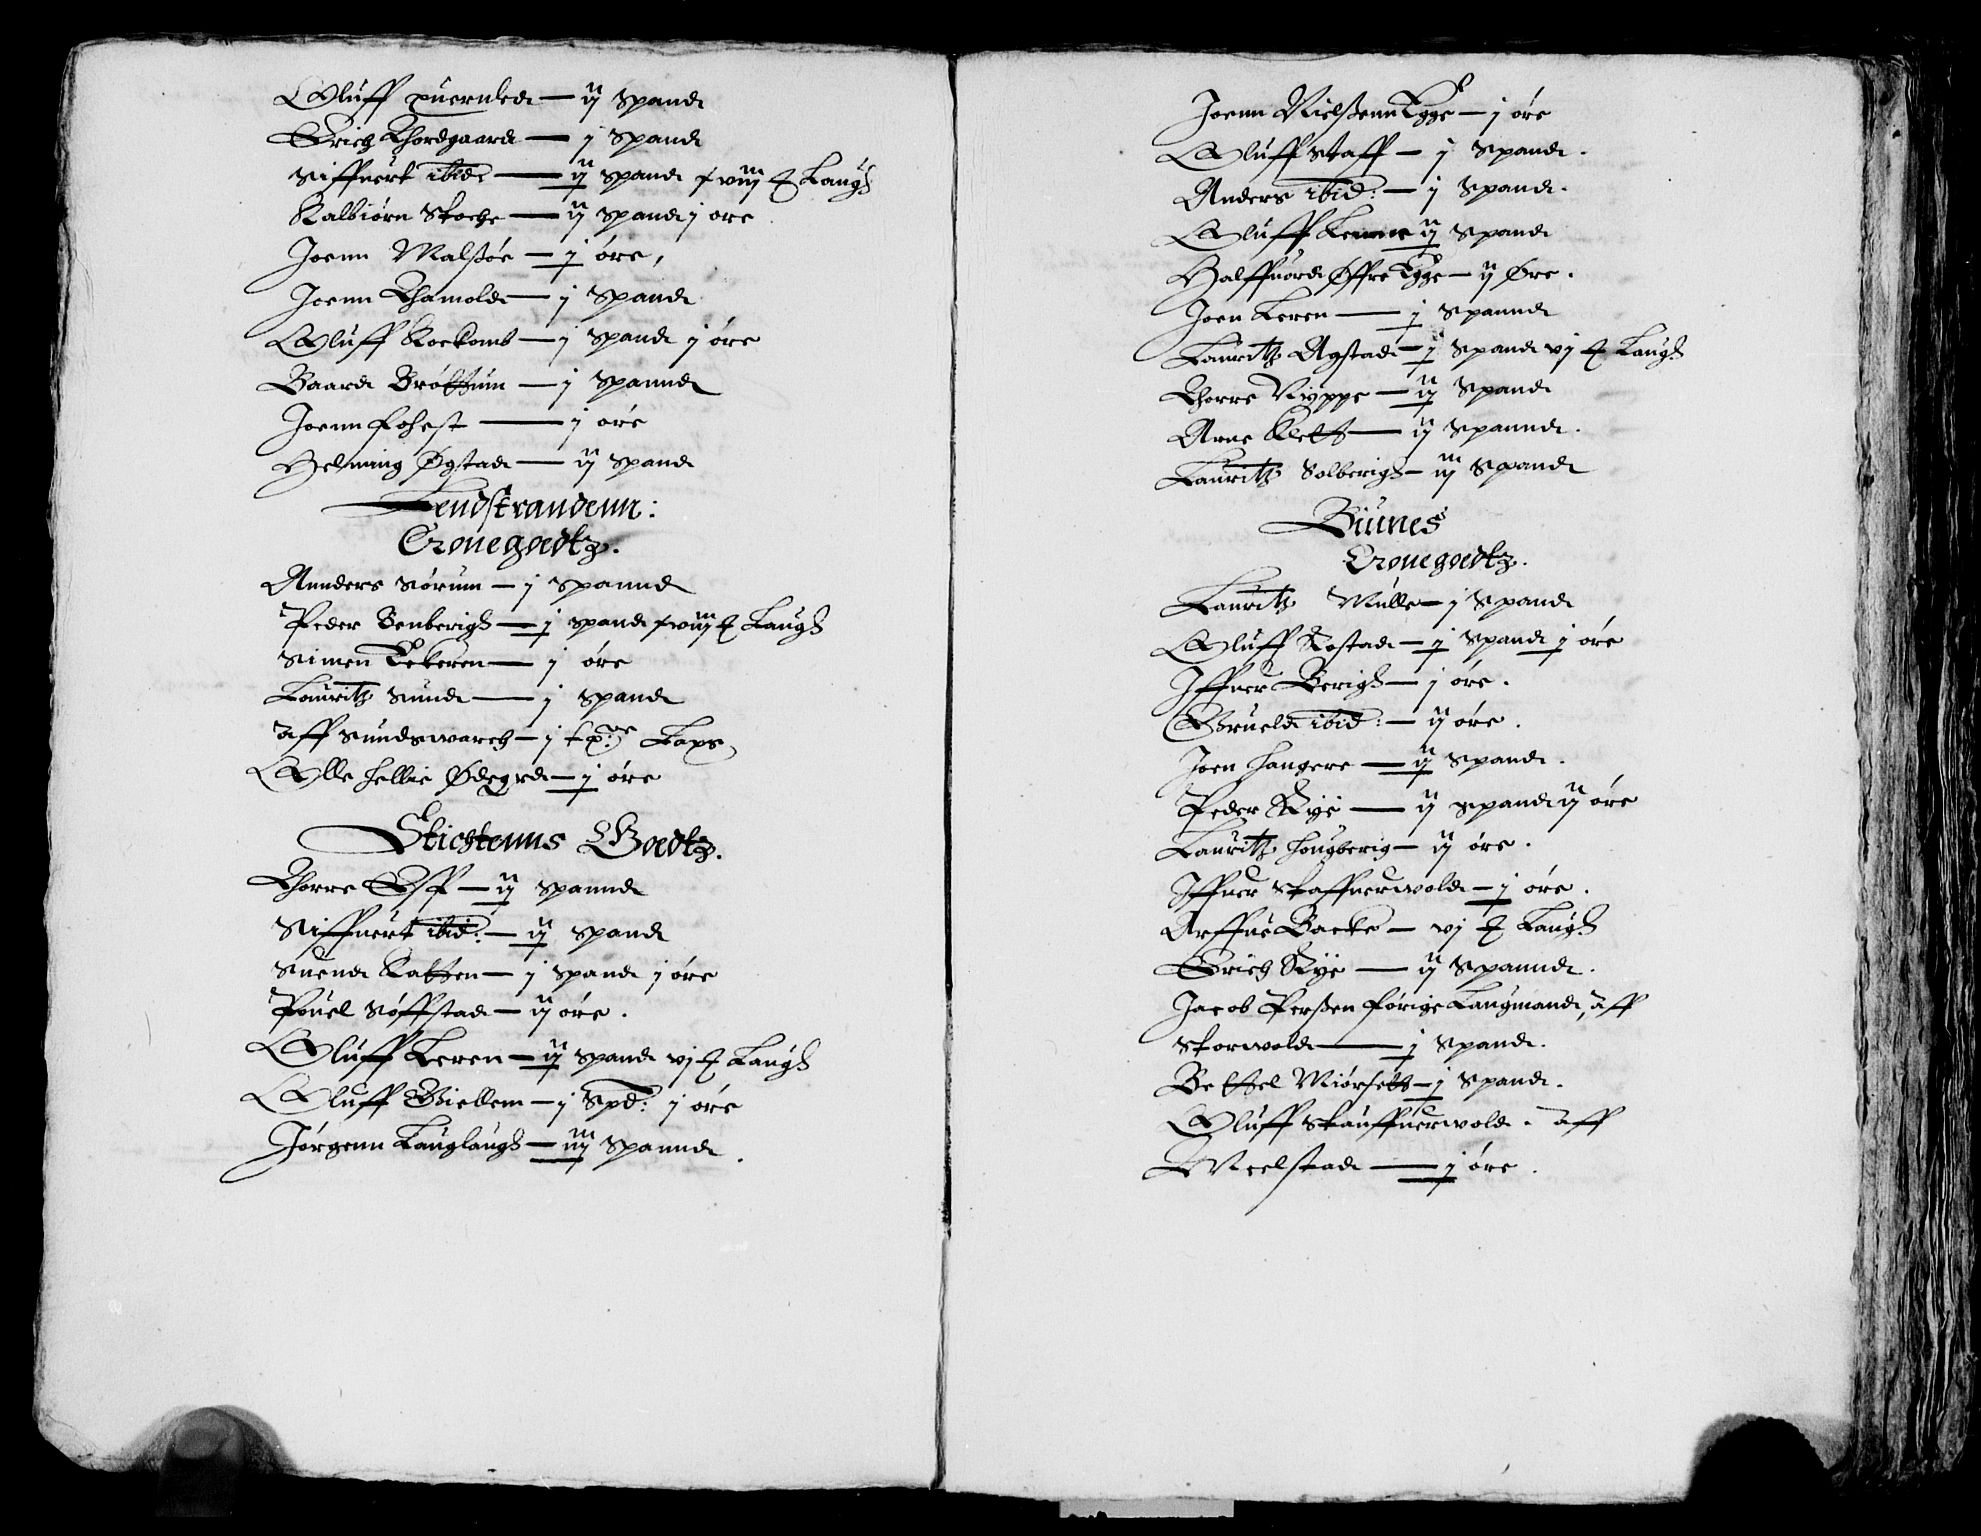 Oluff quernlid — ij Spand
Erich Thordgaard — j Spand
Siffuert ibid — ij Spand xviij Laugh
Kalbiørn Stoche — ij Spand j øre
Joenn Malsøe — j øre,
Joenn Thamold — j Spand
Oluff Rockomb — j Spand j øre
Baard Brøttum — j Spannd
Joenn Fohest — j øre
Helming Øgstad — ij Spand
Lendstrandenn:
Cronegoedtz.
Annders Sørum — j Spannd
Peder Benberigh — j Spand xviij Laugh
Simen Tekeren — j øre
Lauritz Sund — j Spand
Aff Sundswarch — j Lax
Olle Hellie Ødegrd — j øre
Stichtenns Goedtz.
Thorre Esp — ij Spannd
Siffuert ibid: — ij Spand
Suend Katten — j Spand j øre
Pouel Søffstad — ij øre.
Oluff Leren — ij Spand vj Laugh
Oluff Giellem — j Spd: j øre
Jørgenn Lauglaugh — iiij Spannd.
Joenn Nielssenn Egge — j øre
Oluff Staff — j Spand.
Anders ibid: — j Spand.
Oluff Lemme ij Spand
Halffuord Øffre Egge — ij Øre.
Joen Leren — j Spannd
Lauritz Agstad — j Spand vj Laugh
Thorre Nyppe — ij Spand
Arne Klett — ij Spannd.
Lauritz Solberigh — iij Spand
Biunes
Cronegoedtz.
Lauritz Mulle — j Spand
Oluff Rostad — j Spand j øre
Iffuer Berigh — j øre.
Grueld ibid: — ij øre.
Joen Hangere — ij Spand.
Peder Rye — ij Spand ij øre
Lauritz Hougberig — ij øre.
Iffuer Staffuerwold — j øre.
Arffue Backe — vj Laugh
Erich Rye — ij Spannd.
Jacob Perssen forige Laugmand, Aff
Storwold — j Spand.
Bettel Miørsett — j Spand.
Oluff Skauffuerwold. Aff
Meelstad — j øre.